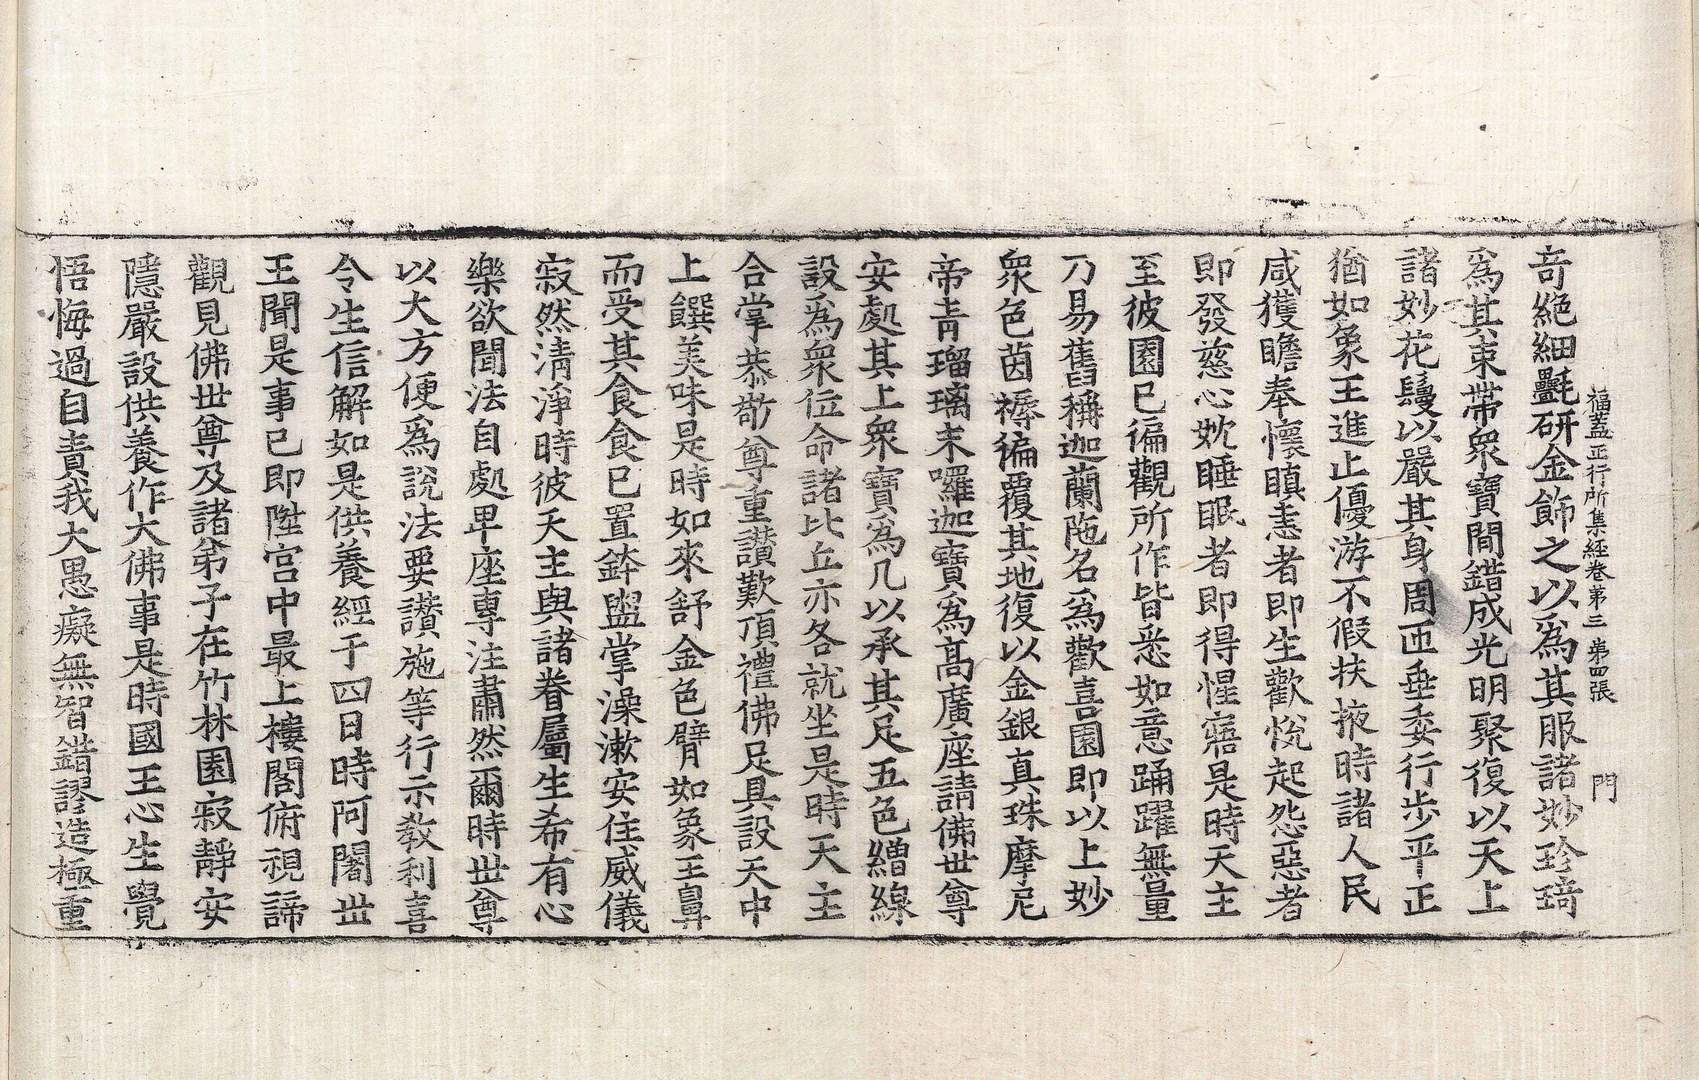 福蓋正行所集經卷第三 第四張 門
奇絕細㲲研金飾之以為其服諸妙珍琦
為其束帶衆寶間錯成光明聚復以天上
諸妙花鬘以嚴其身周匝垂委行步平正
猶如象王進止優游不假扶掖時諸人民
咸獲瞻奉懷瞋恚者即生歡悅起怨惡者
即發慈心妉睡眠者即得惺寤是時天主
至彼園已徧觀所作皆悉如意踊躍無量
乃易舊稱迦蘭陁名為歡喜園即以上妙
衆色茵褥徧覆其地復以金銀真珠摩尼
帝青瑠璃末囉迦寶為髙廣座請佛世尊
安處其上衆寶為几以承其足五色繒線
設為衆位命諸比丘亦各就坐是時天主
合掌恭敬尊重讚歎頂禮佛足具設天中
上饌美味是時如來舒金色臂如象王鼻
而受其食食已置鉢盥掌澡漱安住威儀
寂然清淨時彼天主與諸眷屬生希有心
樂欲聞法自處卑座專注肅然爾時世尊
以大方便為說法要讚施等行示教利喜
令生信解如是供養經于四日時阿闍世
王聞是事已即陞宫中最上樓閣俯視諦
觀見佛世尊及諸弟子在竹林園寂靜安
隱嚴設供養作大佛事是時國王心生覺
悟悔過自責我大愚癡無智錯謬造極重